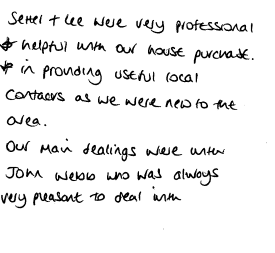 Setter + Lee were very professional
+ helpful with our house purchase.
+ in providing useful local
contacts as we were new to the
area.
Our main dealings were with
John Webb who was always
very pleasant to deal with